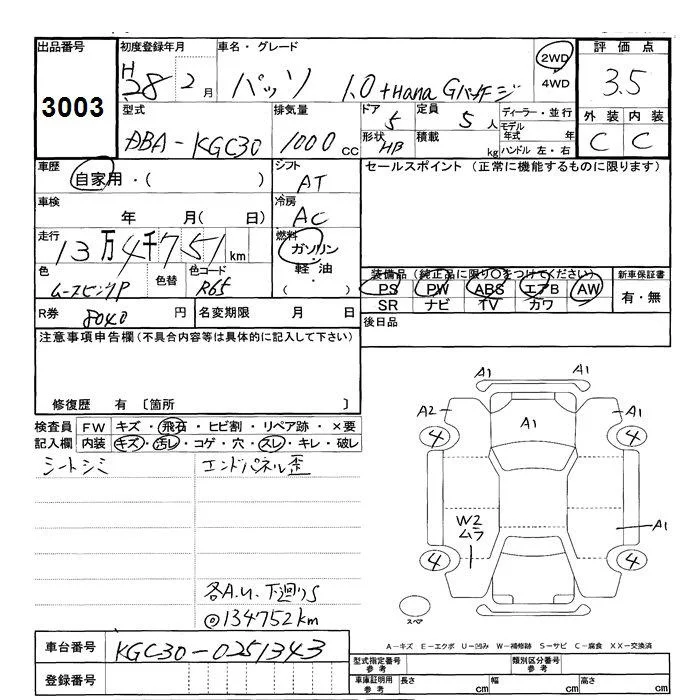 出品番号 初度登録年月 車名・グレード 評価点
3003 H28 2月 パッソ 1.0 +Hana Gパッケージ 2WD 4WD 3.5
型式 排気量 ドア 5 定員 5人 ディーラー・並行 外装 内装
DBA-KGC30 1000cc 形状 HB 積載 kg モデル年式 年 ハンドル 左・右 C C
車歴 シフト セールスポイント (正常に機能するものに限ります)
自家用・( ) AT
車検 冷房
年 月( 日) AC
走行 燃料
13万4千751km ガソリン
色 色替 色コード 軽油 装備品 (純正品に限り○をつけてください) 新車保証書
R65 ・( ) PS PW ABS エアB AW 有・無
SR ナビ TV カワ
R券 8040円 名変期限 月 日 後日品
注意事項申告欄(不具合内容等は具体的に記入して下さい)
修復歴 有 〔箇所 〕
検査員 FW キズ・飛石・ヒビ割・リペア跡・×要
記入欄 内装 キズ・汚レ・コゲ・穴・スレ・キレ・破レ
シートシミ エンドパネル歪
各A.U. 下廻りS
◎134752km
A1 A1
A2 A1 A1
4 4
W2 ムラ A1
4 4
スペア
A-キズ E-エクボ U-凹み W-補修跡 S-サビ C-腐食 XX-交換済
車台番号 KGC30-0251343
登録番号
型式指定番号 参考 類別区分番号 参考
車庫証明用 参考 長さ cm 幅 cm 高さ cm